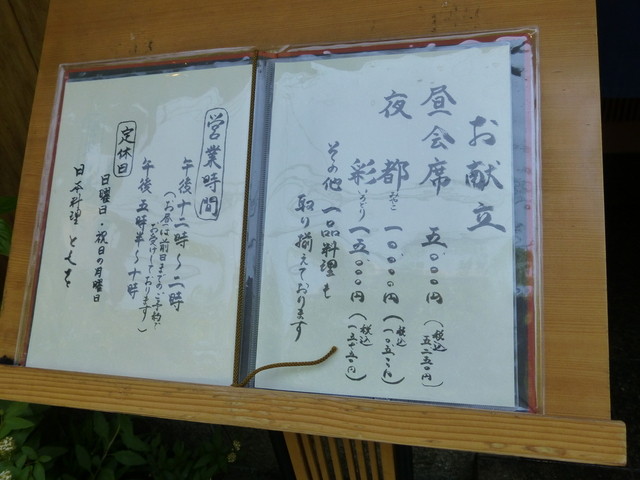 お献立
昼会席 五、〇〇〇円 (税込 五、二五〇円)
夜 都 みやこ 一〇、〇〇〇円 (税込 一〇、五〇〇円)
彩 いろどり 一五、〇〇〇円 (税込 一五、七五〇円)
その他 一品料理も
取り揃えております
営業時間
午後十二時〜二時
(お昼は前日までの予約で
お受けしております)
午後五時半〜十時
定休日
日曜日・祝日の月曜日
日本料理 とくを